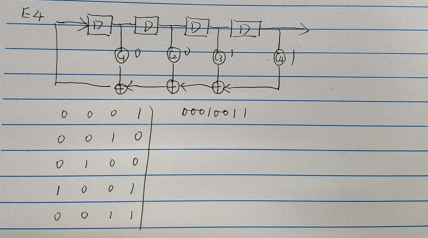 E-4
D D D D
C1 0 C2 0 C3 1 C4 1
0 0 0 1 00010011
0 0 1 0
0 1 0 0
1 0 0 1
0 0 1 1